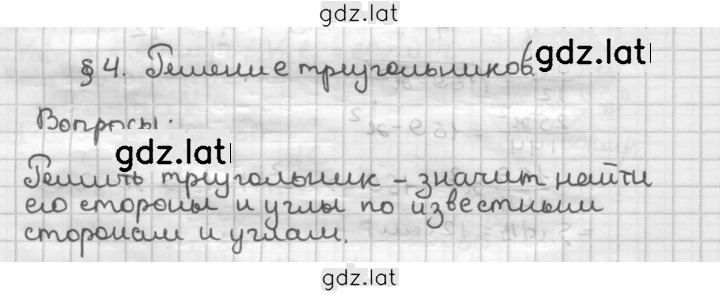 gdz.lat
§ 4. Решение треугольников.
gdz.lat
Вопросы:
gdz.lat
Решить треугольник – значит найти
его стороны и углы по известным
сторонам и углам.
gdz.lat